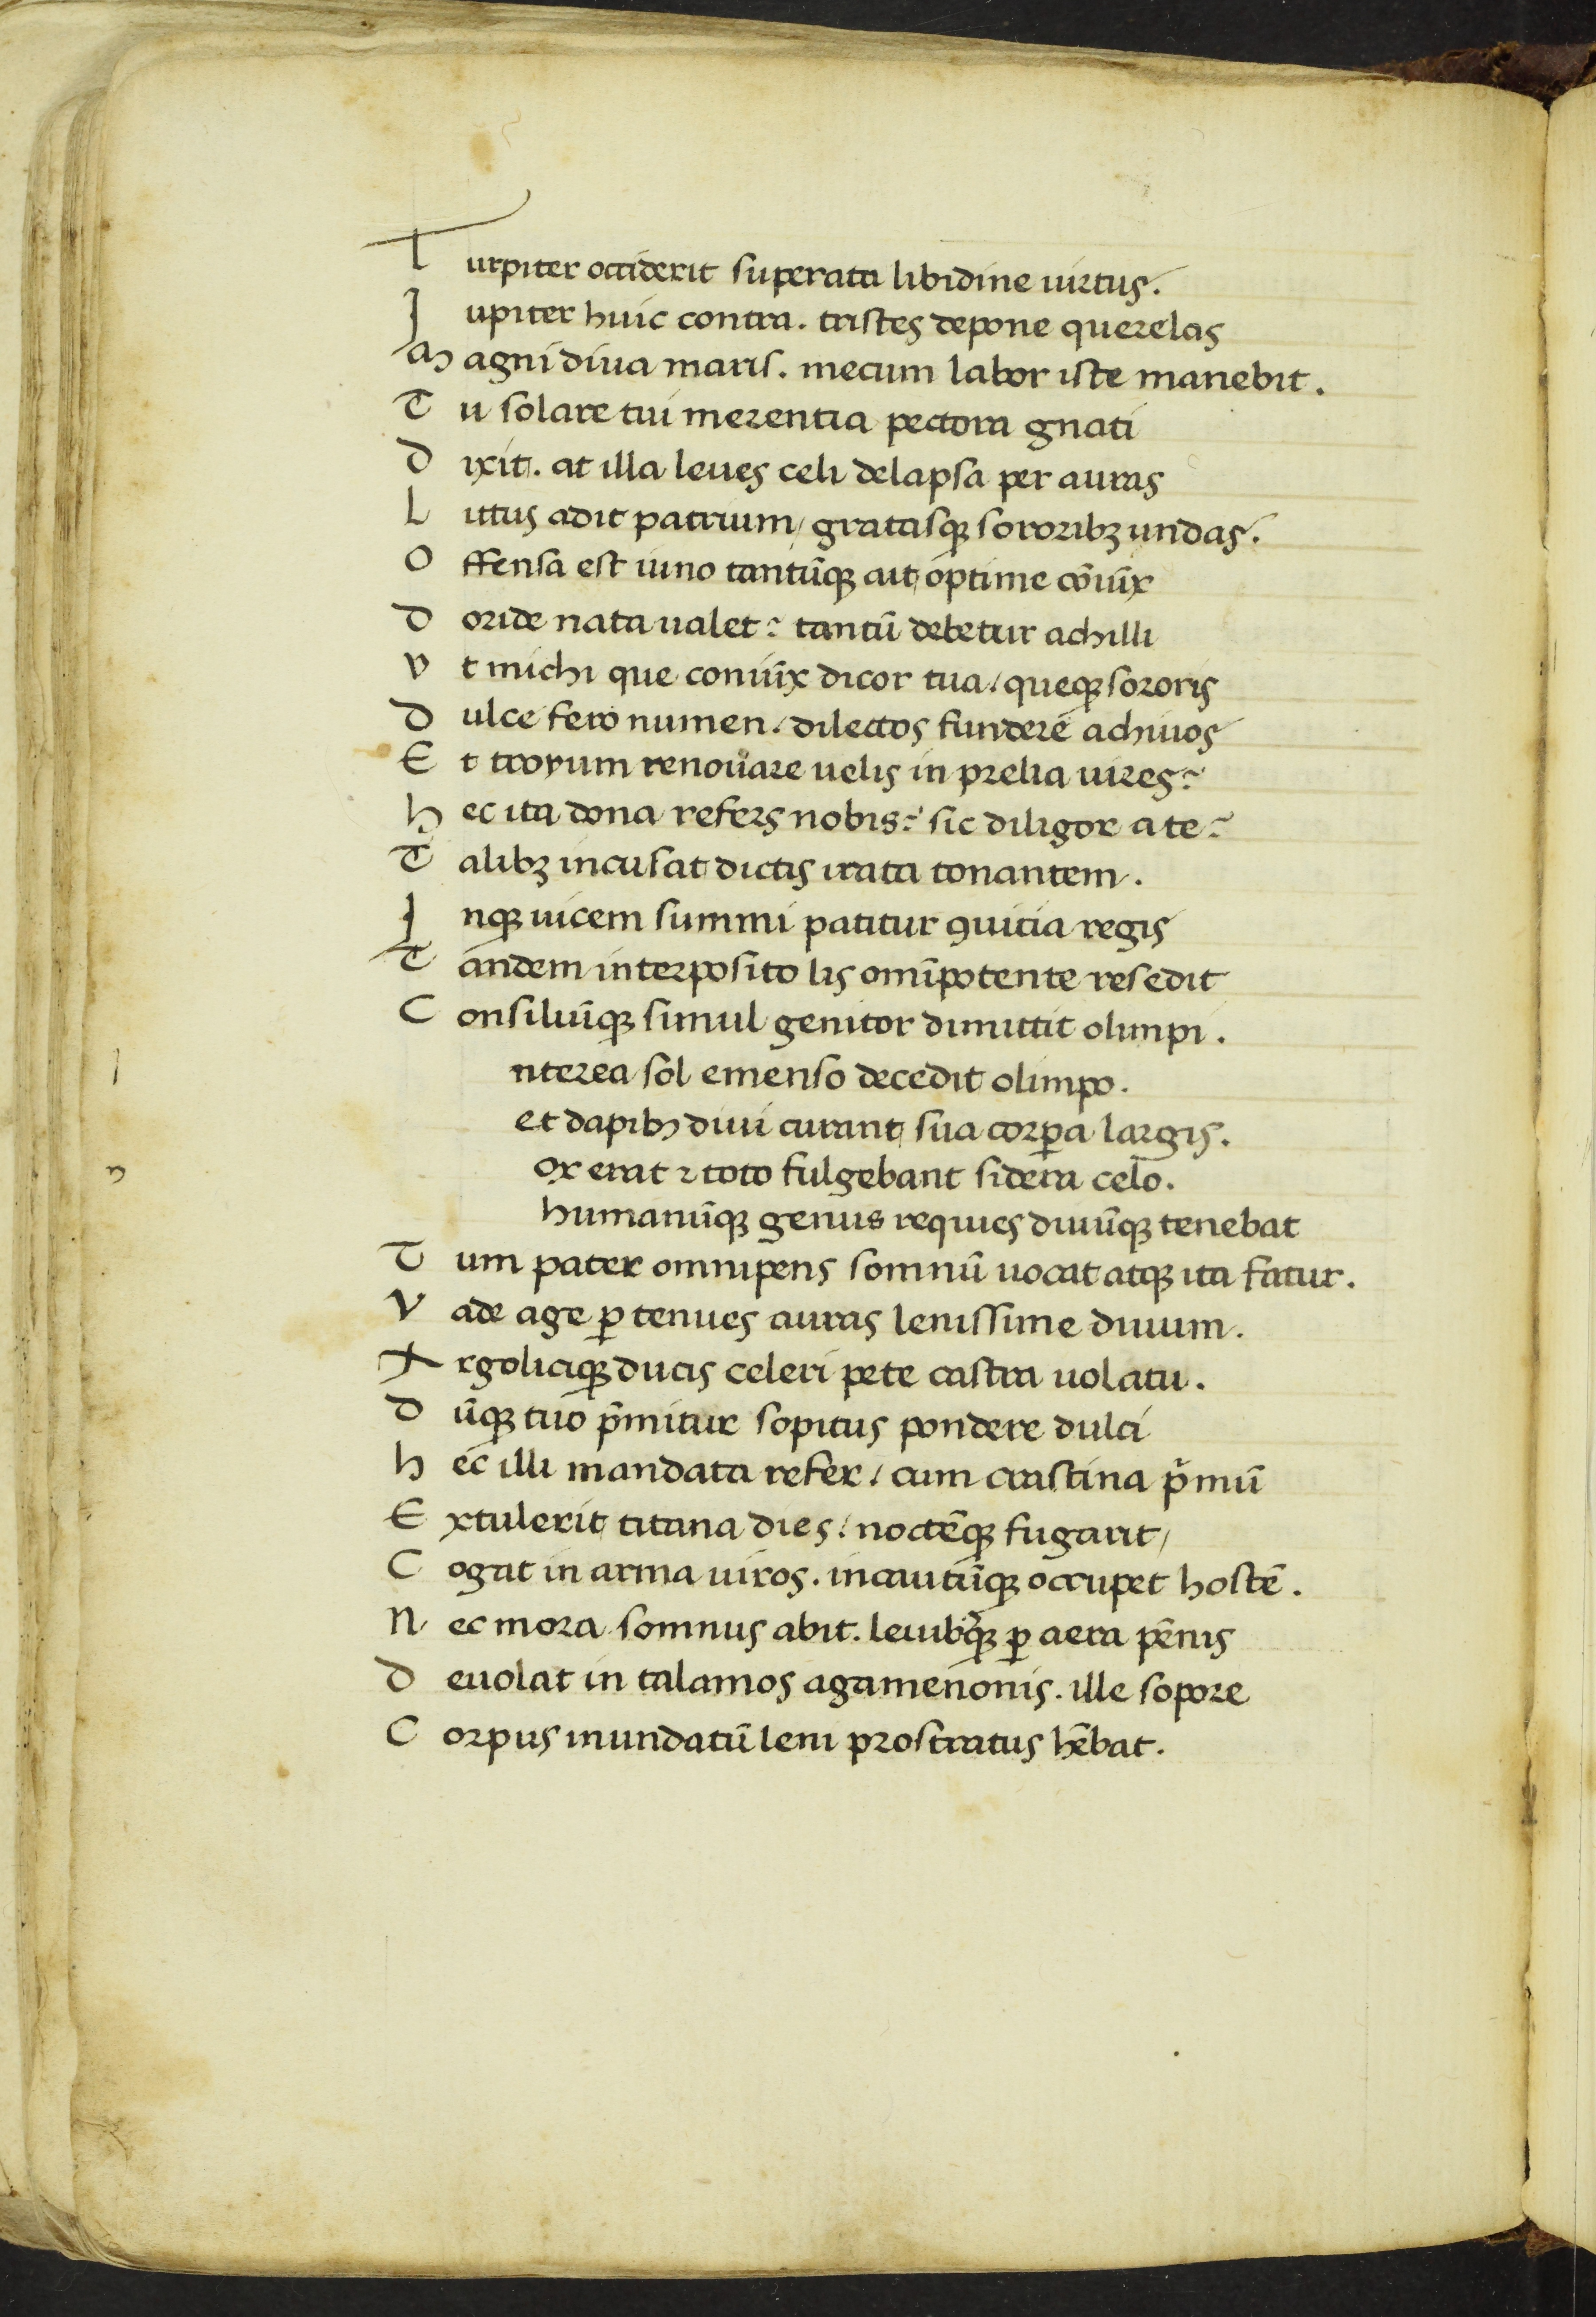 Turpiter occiderit superata libidine uirtus.
Iupiter huic contra. tristes depone querelas
Magni diua maris. mecum labor iste manebit.
Tu solare tui merentia pectora gnati
dixit. at illa leues celi delapsa per auras
Littus adit patrium / gratasqꝫ sororibꝫ undas.
Offensa est iuno tantūqꝫ ait optime cōiūx
doride nata ualet? tantū debetur achilli
vt michi que coniūx dicor tua / queqꝫ sororis
dulce fero numen / dilectos fundere achiuos
Et troyum renouare uelis in prelia uires?
hec ita dona refers nobis? sic diligor a te?
Talibꝫ incusat dictis irata tonantem.
Inqꝫ uicem summi patitur ꝯuitia regis
Tandem interposito lis omīpotente resedit
Consiliūqꝫ simul genitor dimittit olimpi.
nterea sol emenso decedit olimpo.
et dapibꝫ diui curant sua corꝑa largis.
ox erat ⁊ toto fulgebant sidera celo.
humanūqꝫ genus requies diuūqꝫ tenebat
Tum pater omnipens somnū uocat atqꝫ ita fatur.
Vade age ꝑ tenues auras lenissime diuum.
Argoliciqꝫ ducis celeri pete castra uolatu.
dūqꝫ tuo p̄mitur sopitus pondere dulci
hec illi mandata refer / cum crastina p̌mū
Extulerit titana dies / noctēqꝫ fugarit /
Cogat in arma uiros. incautūqꝫ occupet hostē.
Nec mora somnus abit. leuibꝫqꝫ ꝑ aera pēnis
deuolat in talamos agamenonis. ille sopore
Corpus inundatū leni prostratus hēbat.
l
n